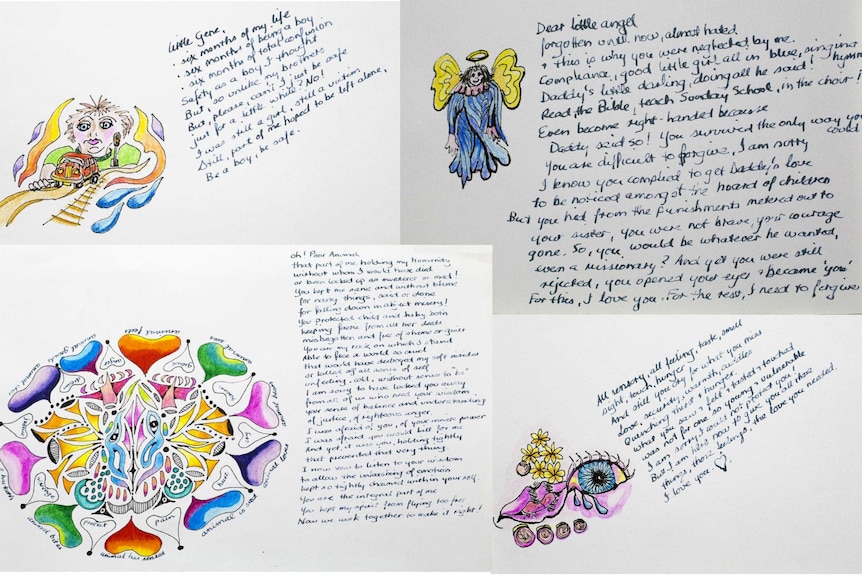 Little Gene,
six months of my life
six months of being a boy
six months of total confusion
Safety as a boy I thought
But, so unlike my brothers
But, please, can't I just be safe
just for a little while? No!
I was still a girl, still a victim
Still, part of me hoped to be left alone,
Be a boy, be safe.
Dear little angel
forgotten until now, almost hated.
& this is why you were neglected by me.
Compliance, good little girl all in blue, singing hymns
Daddy's little darling, doing all he said!
Read the Bible, teach Sunday School, in the choir
Even become right-handed because
Daddy said so! You survived the only way you could
You are difficult to forgive, I am sorry
I know you complied to get Daddy's love
to be noticed amongst the hoard of children
But you hid from the punishments metered out to
your sister, you were not brave, your courage
gone. So, you would be whatever he wanted,
even a missionary? And yet you were still
rejected, you opened your eyes & became 'you'
For this, I love you. For the rest, I need to forgive
oh! Poor Animal
that part of me holding my humanity
without whom I would have died
or been locked up as murderer or mad!
You kept me sane and without blame
for nasty things, said or done
for falling down in abject misery!
You protected child and baby both
keeping factie from all her dads
misbegotten and free of shame or guilt
You are my rock on which I stand
Able to face a world so cruel
that would have destroyed my soft insides
or killed off all sense of self
unfeeling, cold, & without sense to "be"
I am sorry to have locked you away
from all of us who need your wisdom
your sense of balance and understanding
of justice, of righteous anger.
I was afraid of you, of your immense power
I was afraid you would kill for me
And yet it was you, holding tightly
that prevented that very thing.
I now vow to listen to your wisdom
to allow the unleashing of emotion
kept so tightly channed within yourself.
You are the integral part of me
You kept my spirit from flying too free
Now we work together to make it right!
animal feels
animal
animal is
animal has
animal bites
protect
pain
angu
All sensory, all feeling, taste, smell
sight, touch, hunger
And still you cry for what you miss
love, security, warmth, cuddles
Quenching thirst & hunger.
What you saw & felt & tasted & touched
was not for one so young, & vulnerable
I am sorry I could not protect you!
But I am here now, to give you all those
things, those feelings, the love you needed.
I love you